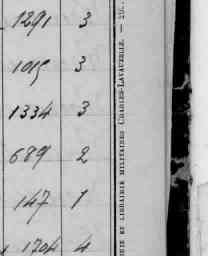 1291 3
1015 3
1334 3
689 2
147 1
1704 4
RIE ET LIBRAIRIE MILITAIRES CHARLES-LAVAUZELLE. —